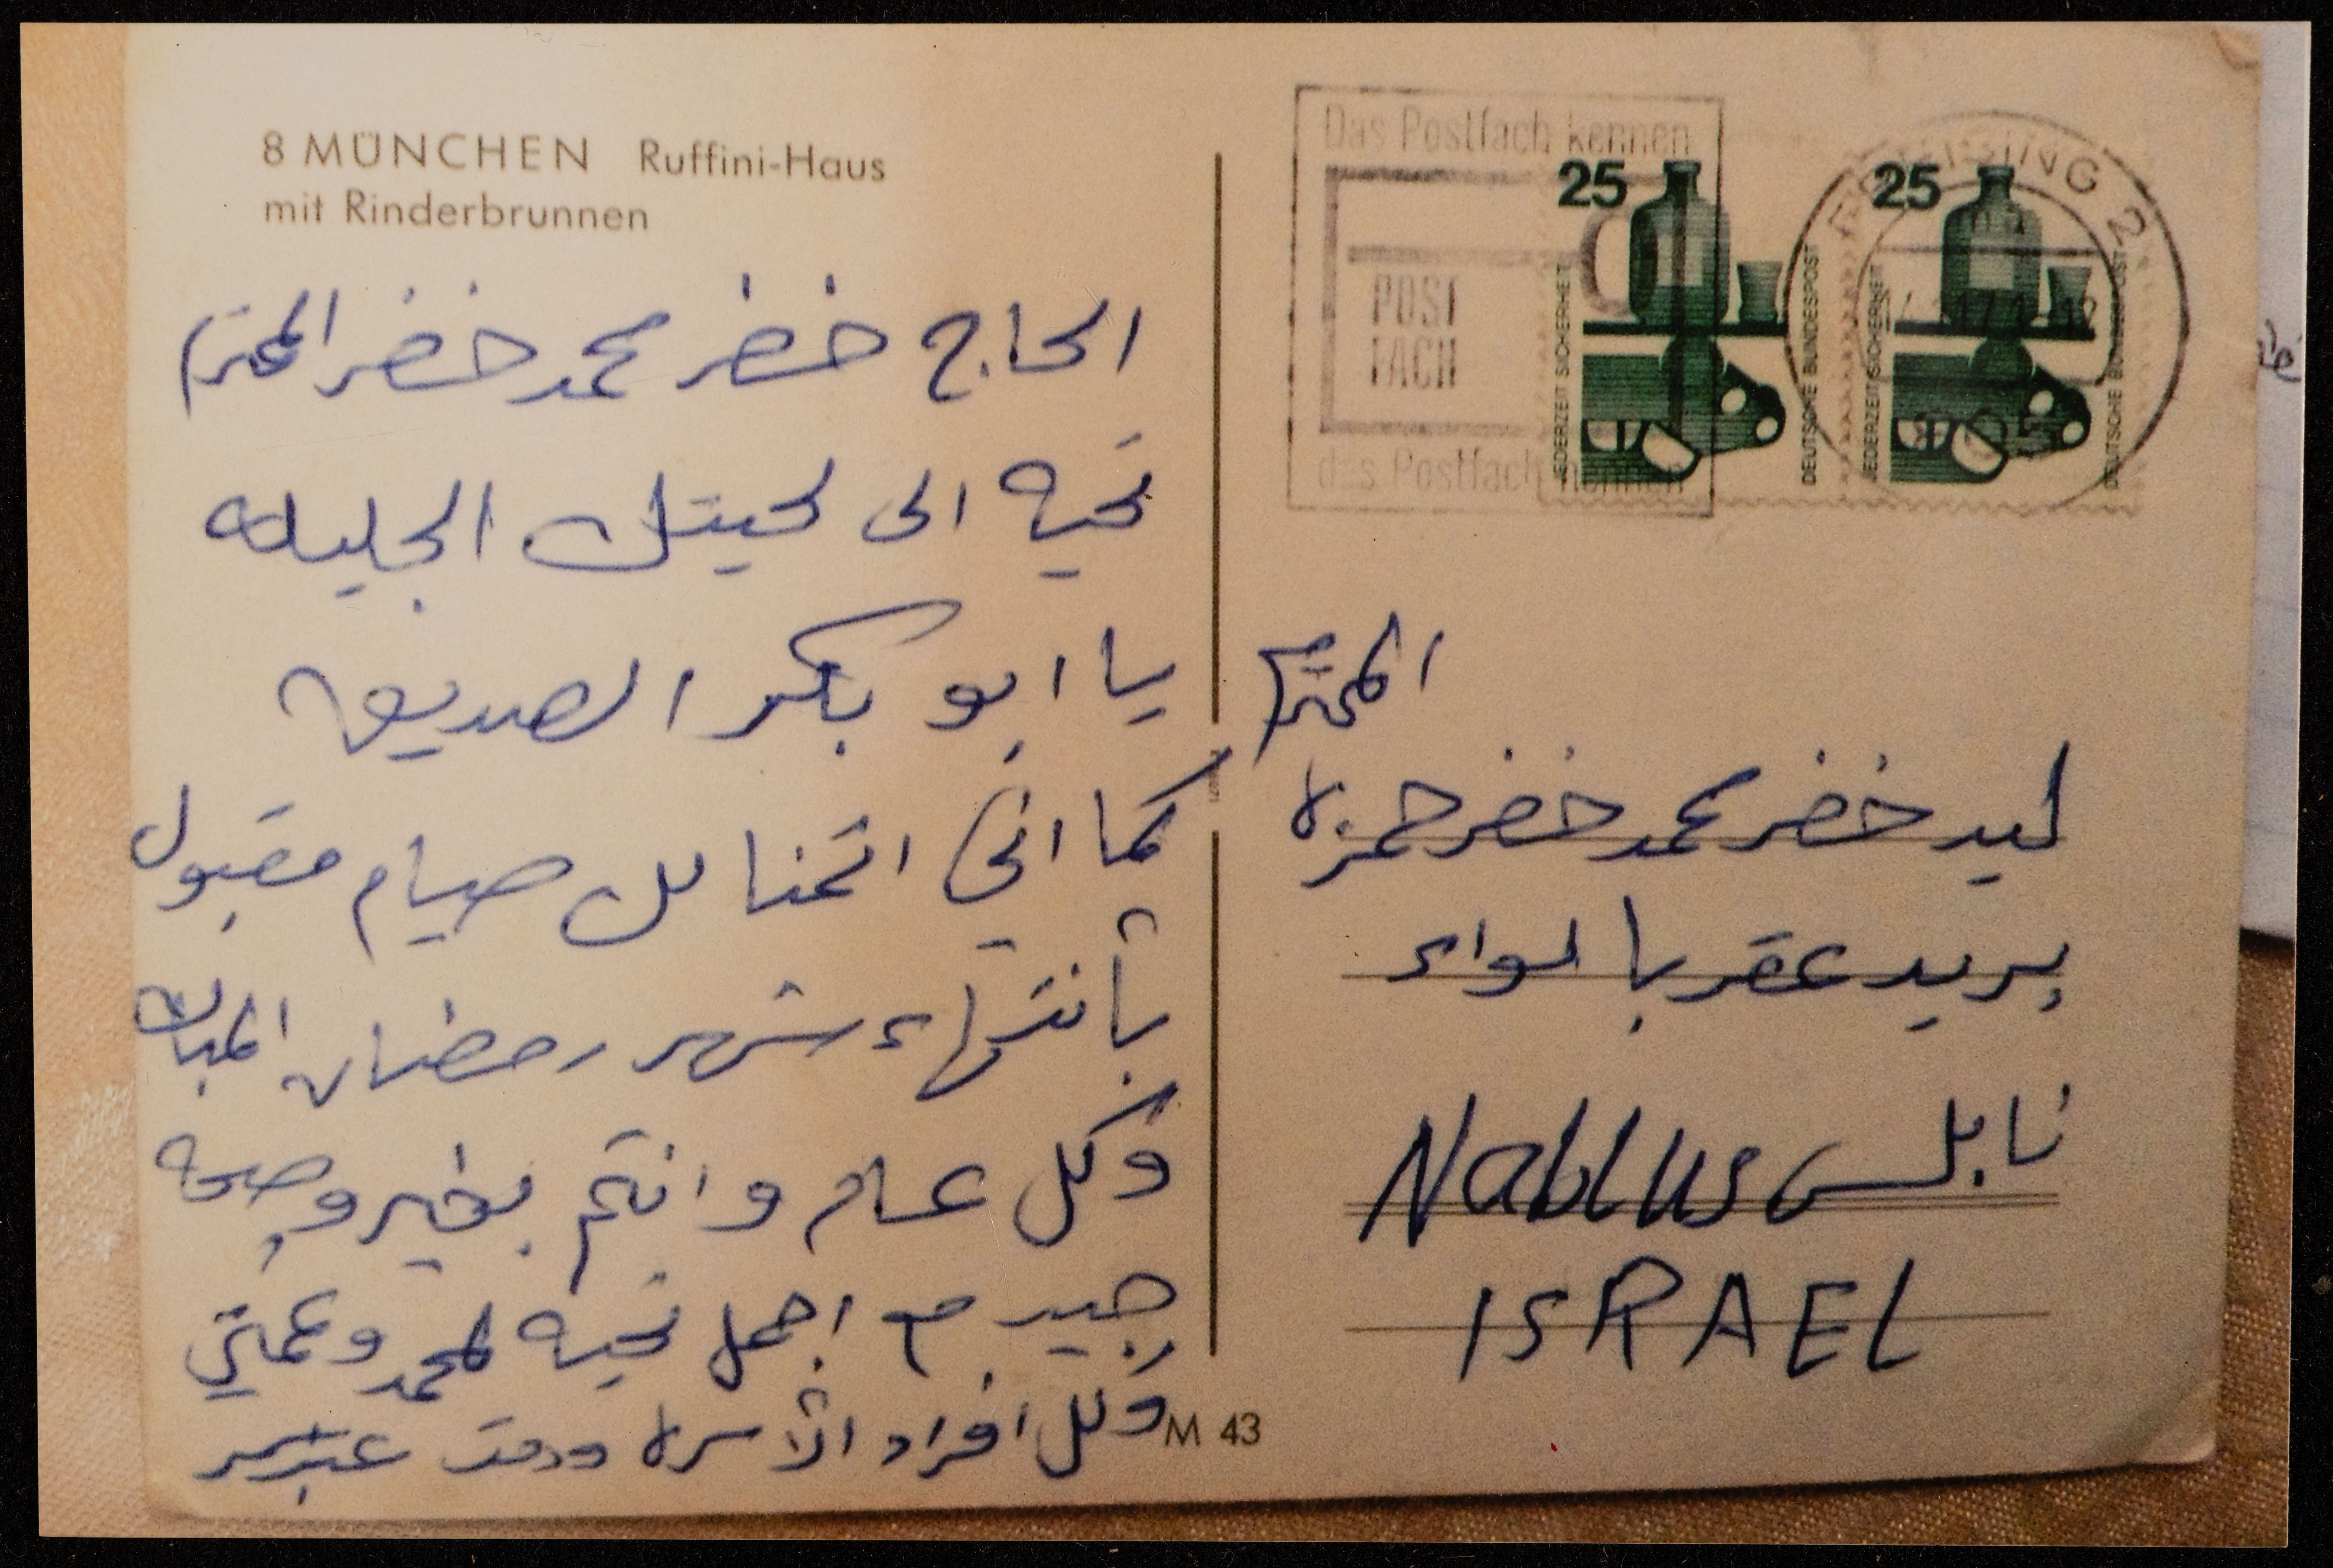 8 MÜNCHEN Ruffini-Haus
mit Rinderbrunnen
الحاج خضر محمد خضر المحترم
تحيه الى لحيتك الجليله
يا ابو بكر الصديق
كما اني اتمنا لك صيام مقبول
بأنتهاء شهر رمضان المبارك
وكل عام وانتم بخير وصحه
جيده مع اجمل تحيه لمحمد وعمتي
وكل افراد الأسره ودمت
M 43
Das Postfach kennen
POST
FACH
das Postfach nennen
25
JEDERZEIT SICHERHEIT
DEUTSCHE BUNDESPOST
25
JEDERZEIT SICHERHEIT
DEUTSCHE BUNDESPOST
FREISING 2
805
المحترم
ليد خضر محمد خضر حمزه
بريد عقربا لواء
نابلس Nablus
ISRAEL